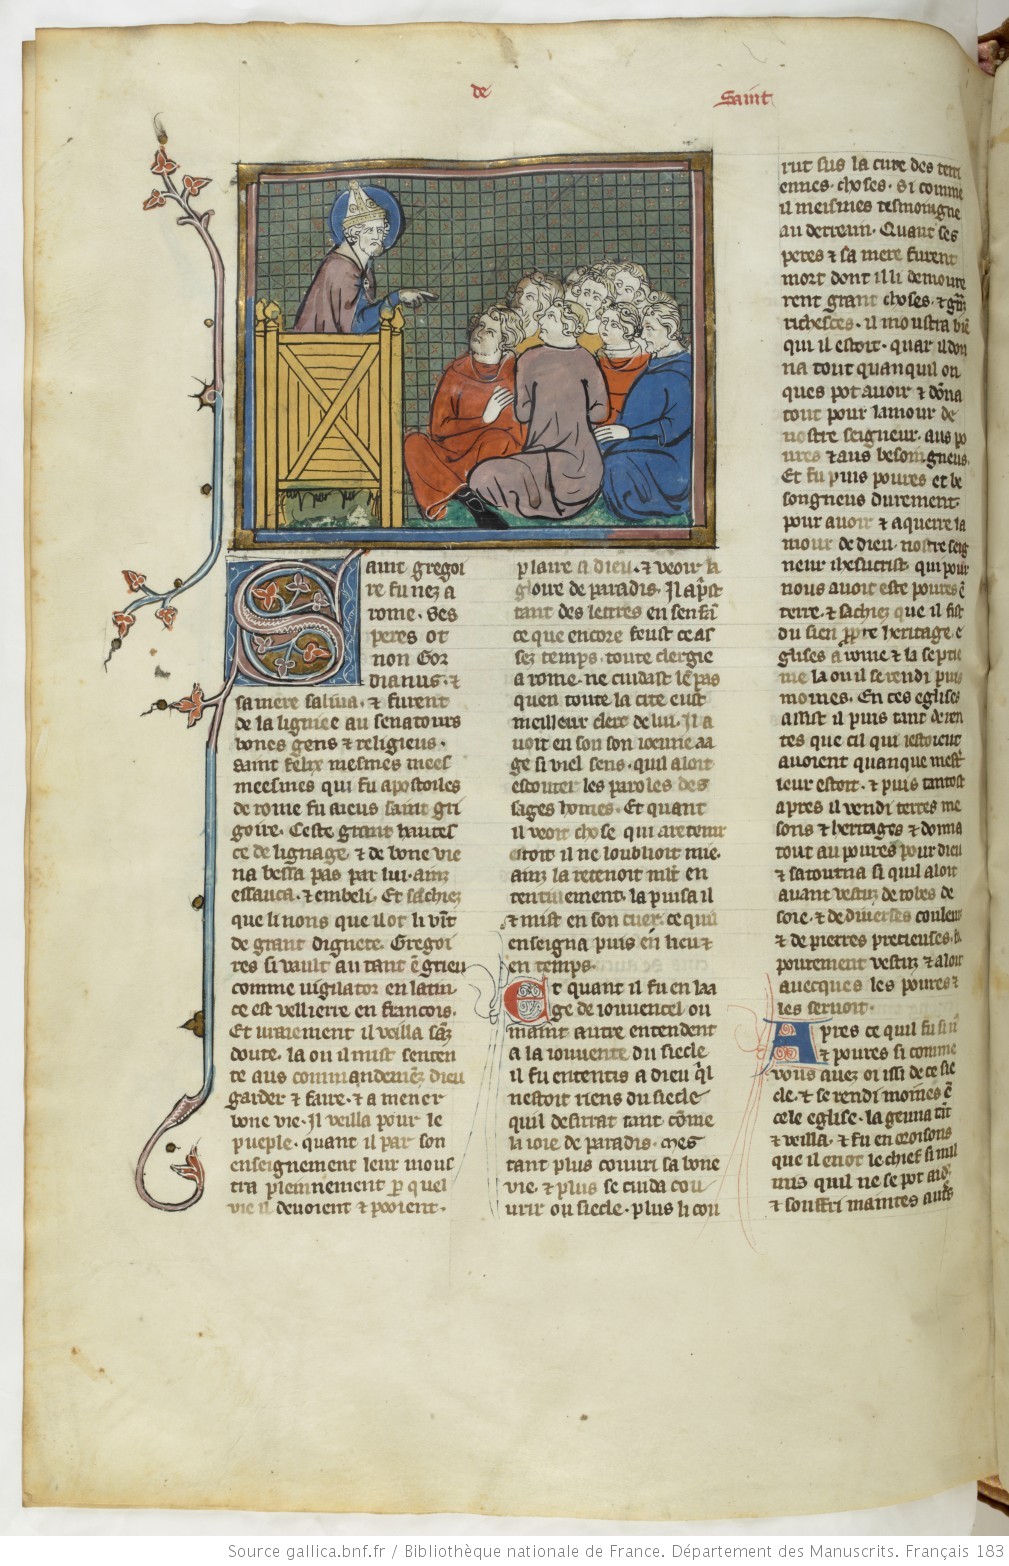 de
Saint
Saint gregoi
re fu nez a
rome. Ses
peres ot
non Gor
dianus. ⁊
sa mere saluia. ⁊ furent
de la ligniee au senatours
bones gens ⁊ religieus.
saint felix mesmes mees
meesmes qui fu apostoiles
de rome fu aieus saint gri
goire. Ceste grant hautes
ce de lignage. ⁊ de bone vie
na bessa pas par lui. ainz
essauca. ⁊ embeli. Et sachiez
que li nons que il ot li vīt
de grant dignete. Gregoi
res si vault autant ē grieu
comme vigilator en latin.
ce est veilliere en francois.
Et uraiement il veilla sāz
doute. la ou il mist senten
te aus commandemēz dieu
garder ⁊ faire. ⁊ a mener
bone vie. Il veilla pour le
pueple. quant il par son
enseignement leur mous
tra pleinnement p quel
vie il devoient ⁊ pooient.
plaire a dieu. ⁊ veoir la
gloire de paradis. Il aprist
tant des lettres en senfā
ce que encore feust ce as
sez temps. toute clergie
a rome. ne cuidast lē pas
quen toute la cite eust
meilleur clerc de lui. Il a
uoit en son son ioenne aa
ge si viel sens. quil aloit
escouter les paroles des
sages homes. Et quant
il veoit chose qui a retenir
estoit il ne loublioit mie.
ainz la retenoit mlt en
tentiuement. la puisa il
⁊ mist en son cuer. ce quil
enseigna puis en lieu ⁊
en temps.
Et quant il fu en laa
ge de iouuencel ou
maint autre entendent
a la iouuente du siecle
il fu ententis a dieu q̄l
nestoit riens du siecle
quil desirrat tant cōme
la ioie de paradis. mes
tant plus couuri sa bone
vie. ⁊ plus se cuida cou
urir ou siecle. plus li cou
rut sus la cure des terri
ennes. choses. si comme
il meismes tesmoingne
au derreain. Quant ses
peres ⁊ sa mere furent
mort dont il li demoure
rent grant choses. ⁊ grāz
richesces. il moustra biē
qui il estoit. quar il don
na tout quanquil on
ques pot auoir ⁊ dōna
tout pour lamour de
nostre seigneur. aus po
ures ⁊ aus besoingneus.
Et fu puis poures et be
songneus durement.
pour auoir ⁊ aquerre la
mour de dieu. nostre seig
neur ihesucrist. qui pour
nous auoit este poures ē
terre. ⁊ sachiez que il fist
du sien ppre heritage. e
glises a rome ⁊ la septie
me la ou il se rendi puis
moines. En ces eglises
assist il puis tant de ren
tes que cil qui iestoient
auoient quanque mest
ieur estoit. ⁊ puis tantost
apres il vendi terres me
sons ⁊ heritages ⁊ donna
tout au poures pour dieu
⁊ satourna si quil aloit
auant vestuz de robes de
soie. ⁊ de diuerses couleur
⁊ de pierres precieuses.
pourement vestuz ⁊ aloit
auecques les poures ⁊
les seruoit.
Apres ce quil fu sīn
⁊ poures si comme
vous auez oi issi de ce sie
cle. ⁊ se rendi moines ē
cele eglise. la geuna tāt
⁊ veilla. ⁊ fu en oroisons
que il en ot le chief si mal
mis quil ne se pot aid
⁊ souffri maintes aus
Source gallica.bnf.fr / Bibliothèque nationale de France. Département des Manuscrits. Français 183